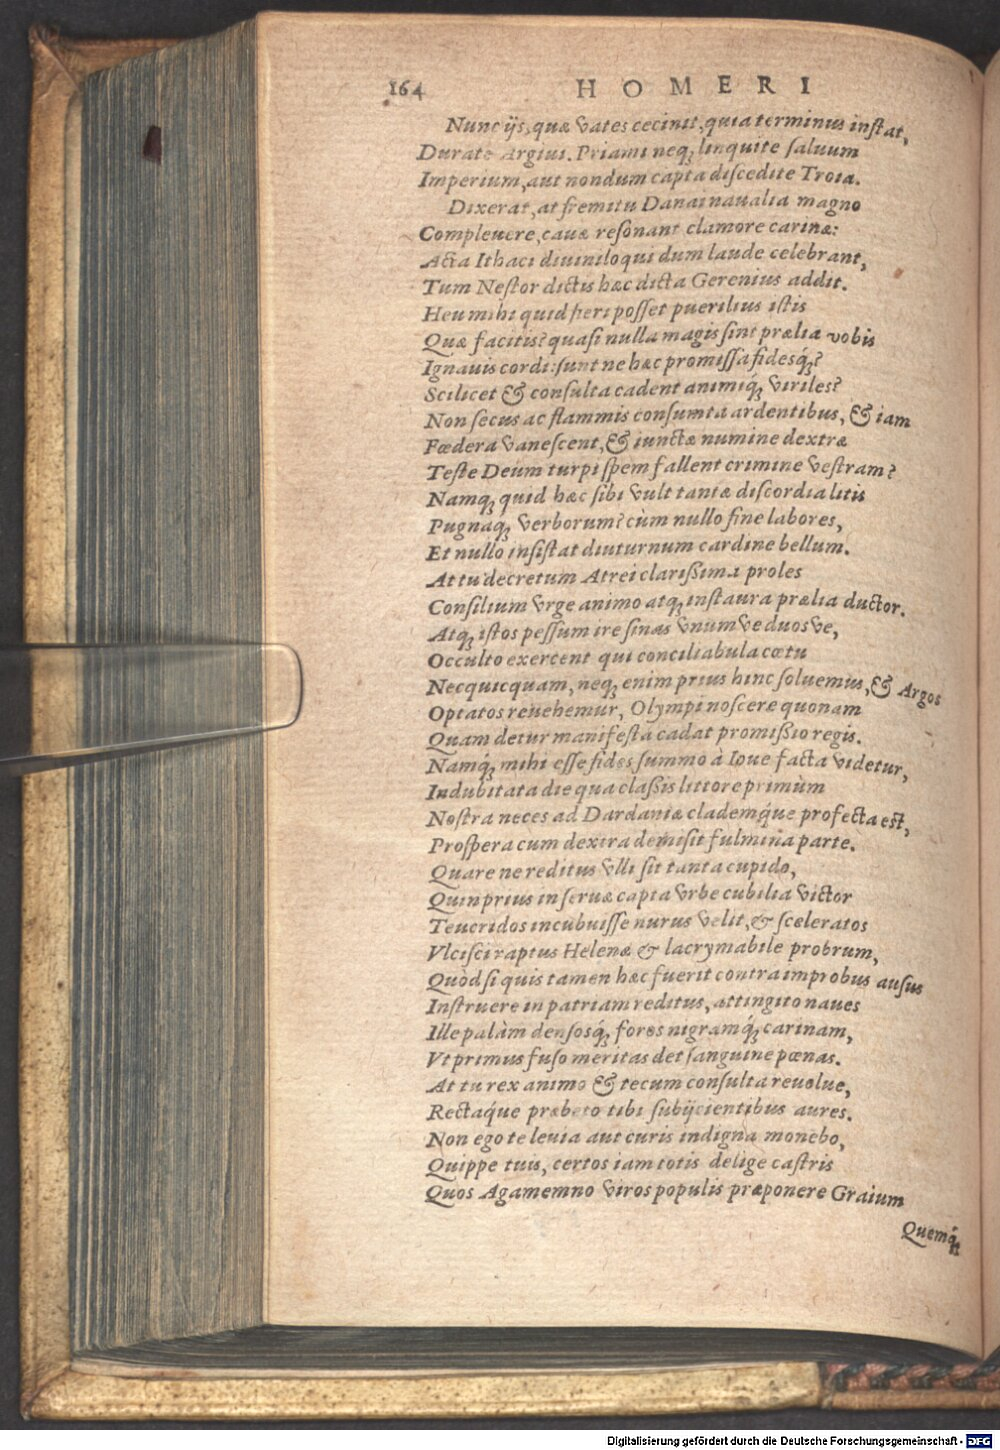 164 HOMERI
Nunc ijs, quæ vates cecinit, quia terminus instat,
Durate Argiui. Priami neq; linquite saluum
Imperium, aut nondum capta discedite Troia.
Dixerat, at fremitu Danai naualia magno
Compleuere, cauæ resonant clamore carinæ:
Acta Ithaci diuiniloqui dum laude celebrant,
Tum Nestor dictis hæc dicta Gerenius addit.
Heu mihi quid fieri posset puerilius istis
Quæ facitis? quasi nulla magis sint prælia vobis
Ignauis cordi: sunt ne hæc promissa fidesq́;?
Scilicet & consulta cadent animiq́; viriles?
Non secus ac flammis consumta ardentibus, & iam
Fœdera vanescent, & iunctæ numine dextræ
Teste Deûm turpi spem fallent crimine vestram?
Namq; quid hæc sibi vult tantæ discordia litis
Pugnaq́; verborum? cùm nullo fine labores,
Et nullo insistat diuturnum cardine bellum.
At tu decretum Atrei clarissima proles
Consilium vrge animo atq; instaura prælia ductor.
Atq; istos pessum ire sinas vnum ve duos ve,
Occulto exercent qui conciliabula cœtu
Necquicquam, neq; enim prius hinc soluemus, & Argos
Optatos reuehemur, Olympi noscere quonam
Quam detur manifesta cadat promissio regis.
Namq́; mihi esse fides summo à Ioue facta videtur,
Indubitata die qua classis littore primùm
Nostra neces ad Dardaniæ clademq́ue profecta est,
Prospera cum dextra demisit fulmina parte.
Quare ne reditus vlli sit tanta cupido,
Quin prius in seruæ capta vrbe cubilia victor
Teucridos incubuisse nurus velit, & sceleratos
Vlcisci raptus Helenæ & lacrymabile probrum,
Quòd si quis tamen hæc fuerit contra improbus ausus
Instruere in patriam reditus, attingito naues
Ille palàm densosq́; foros nigramq́; carinam,
Vt primus fuso meritas det sanguine pœnas.
At tu rex animo & tecum consulta reuolue,
Rectaq́ue præbeto tibi subijcientibus aures.
Non ego te leuia aut curis indigna monebo,
Quippe tuis, certos iam totis delige castris
Quos Agamemno viros populis præponere Graium
Quemq́;
Digitalisierung gefördert durch die Deutsche Forschungsgemeinschaft - DFG